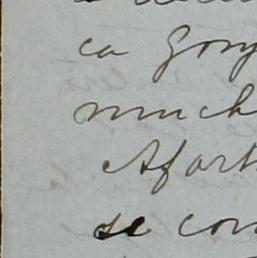 ca Gony
much
Afort
se con